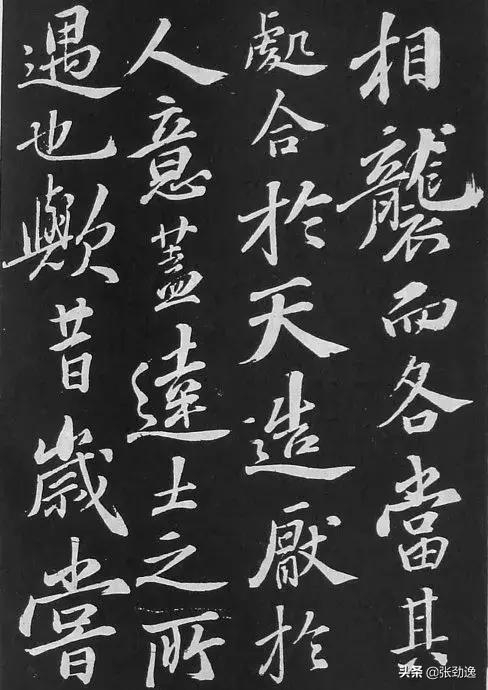 相襲而各當其
處合於天造厭於
人意蓋達士之所
遇也歟昔歲嘗
头条 @张劲逸